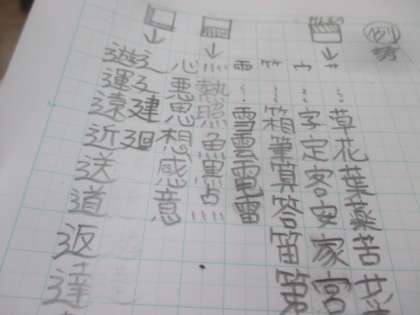 例
艹…草花葉薬苦
宀…字定客安家宮
竹…箱筆算答笛第
雨…雪雲電雷
灬熱照魚黒点
心悪思想感意
廴建廻
辶遊運遠近送道返達